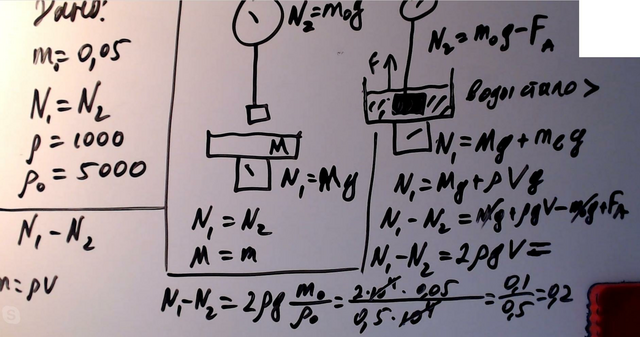 Дано:
m₁=0,05
N₁=N₂
ρ=1000
ρ₀=5000
N₁-N₂
m=ρV
N₂=m₀g
M
N₁=Mg
N₁=N₂
M=m
N₂=m₀g-F_A
F
воды стало >
N₁=Mg+m_cg
N₁=Mg+ρVg
N₁-N₂=Mg+ρgV-mg+F_A
N₁-N₂=2ρgV=
N₁-N₂=2ρg m₀/ρ₀=2·10⁴·0,05/0,5·10⁴=0,1/0,5=0,2